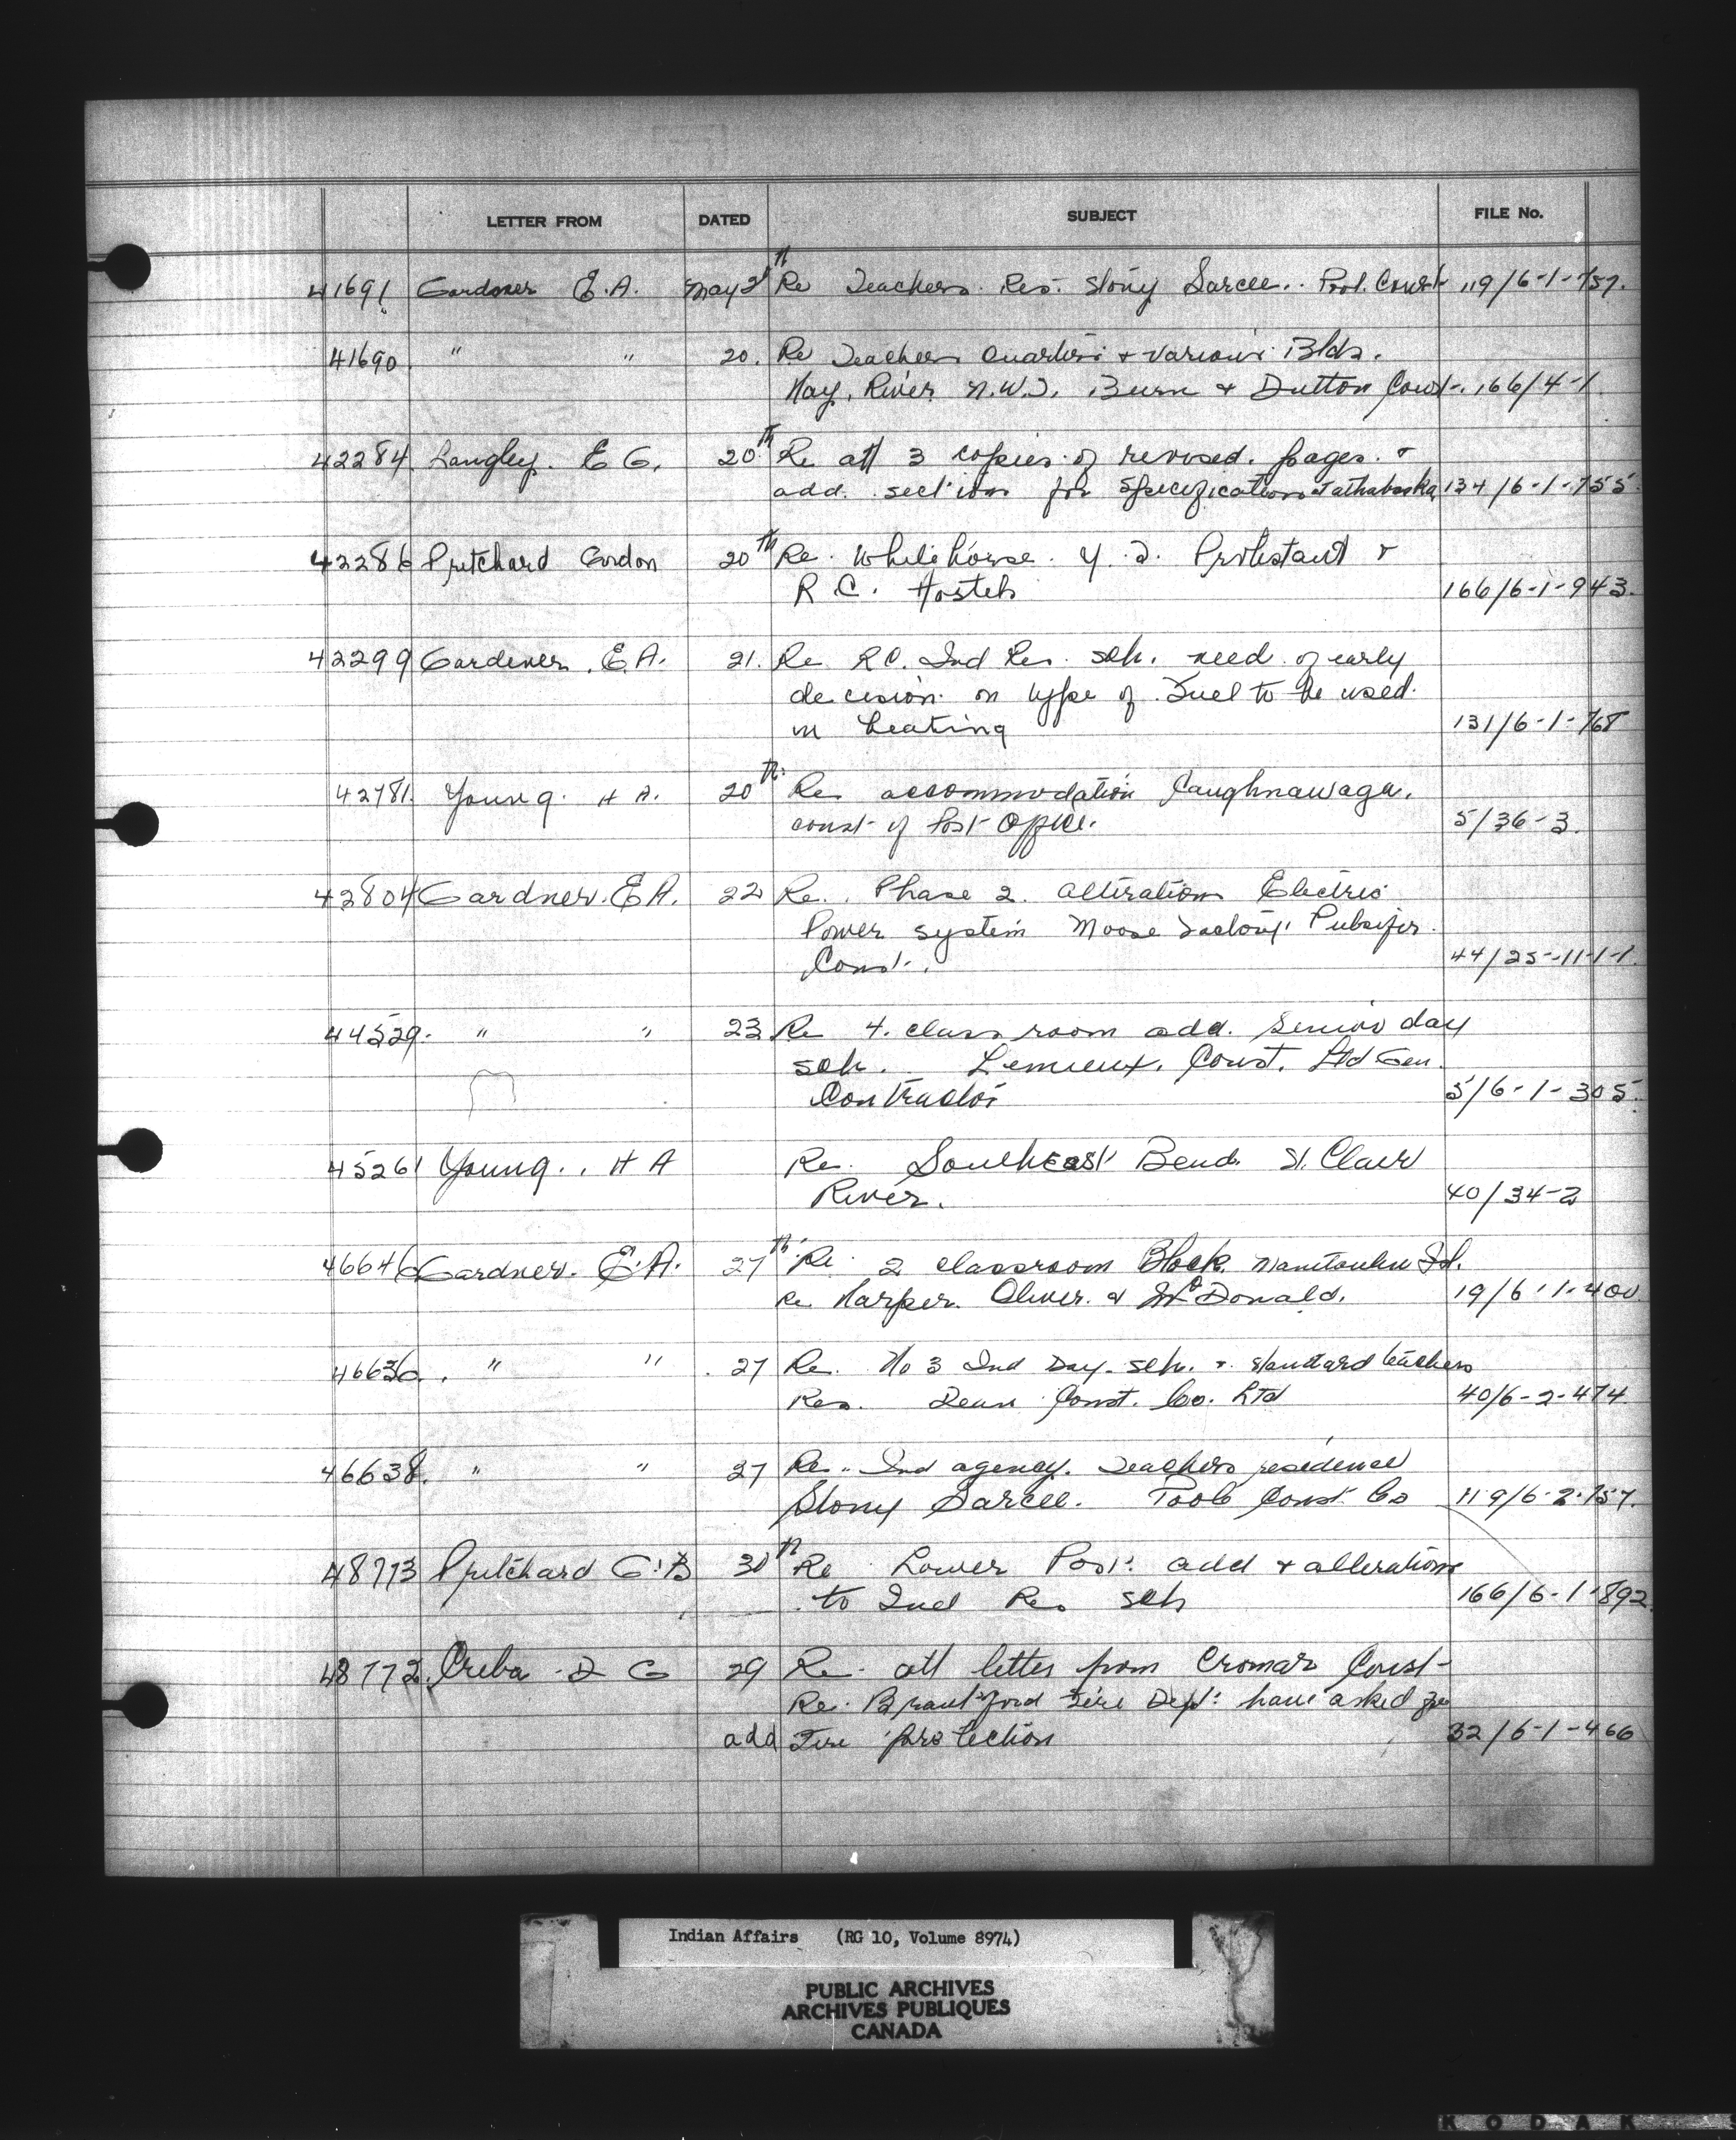 LETTER FROM DATED SUBJECT FILE No.
41691 Gardner E.A. May 2 th Re Teachers Res. Stony Sarcee. Const 119/6-1-157.
41690. " " 20. Re Teachers Quarters + various Blds.
Hay. River N.W.T. Burn + Dutton Const. 166/4-1
42284. Langley. E G. 20th Re att 3 copies of revised. pages. +
add. sections for specifications 134/6-1-155.
42286 Pritchard Gordon 20th Re. Whitehorse. Y.T. Protestant +
R C. Hostels 166/6-1-943.
42299 Gardener. E.A. 21. Re RC. Ind Res. sch. need of early
decision on type of Fuel to be used.
in heating 131/6-1-768
42781. Young. H A. 20th Re accommodation Caughnawaga.
const of Post Office. 5/36-3.
42804 Gardner. E A. 22 Re. Phase 2. alterations Electric
Power system Moose Factory. Pulsifer.
Const. 44/25-11-1-1.
44529. " " 23 Re 4. class room add. Senior day
sch. Lemieux. Const. Ltd Gen.
Contractor 5/6-1-305.
45261 Young., H A Re. Southeast Bend. St. Clair
River. 40/34-2
46646 Gardner. E.A. 27th Re 2 classroom Block. Manitoulin Isl.
Re Harper. Oliver. & McDonald. 19/6-1-400.
46636. " " 27 Re. No 3 Ind Day. sch. + standard teachers
Res. Dean Const. Co. Ltd 40/6-2-474
46638. " " 27 Re. Ind agency. Teachers residence
Stony Sarcee. Poole Const. Co 119/6-2-157.
48773 Pritchard G.B 30th Re Lower Post. add + alterations
to Ind Res Sch 166/6-1-892
48772. Creba D G 29 Re. att letter from Cromar Const
Re. Brantford Fire Dept. have asked for
add Fire protection 32/6-1-466
Indian Affairs (RG 10, Volume 8974)
PUBLIC ARCHIVES
ARCHIVES PUBLIQUES
CANADA
KODAK